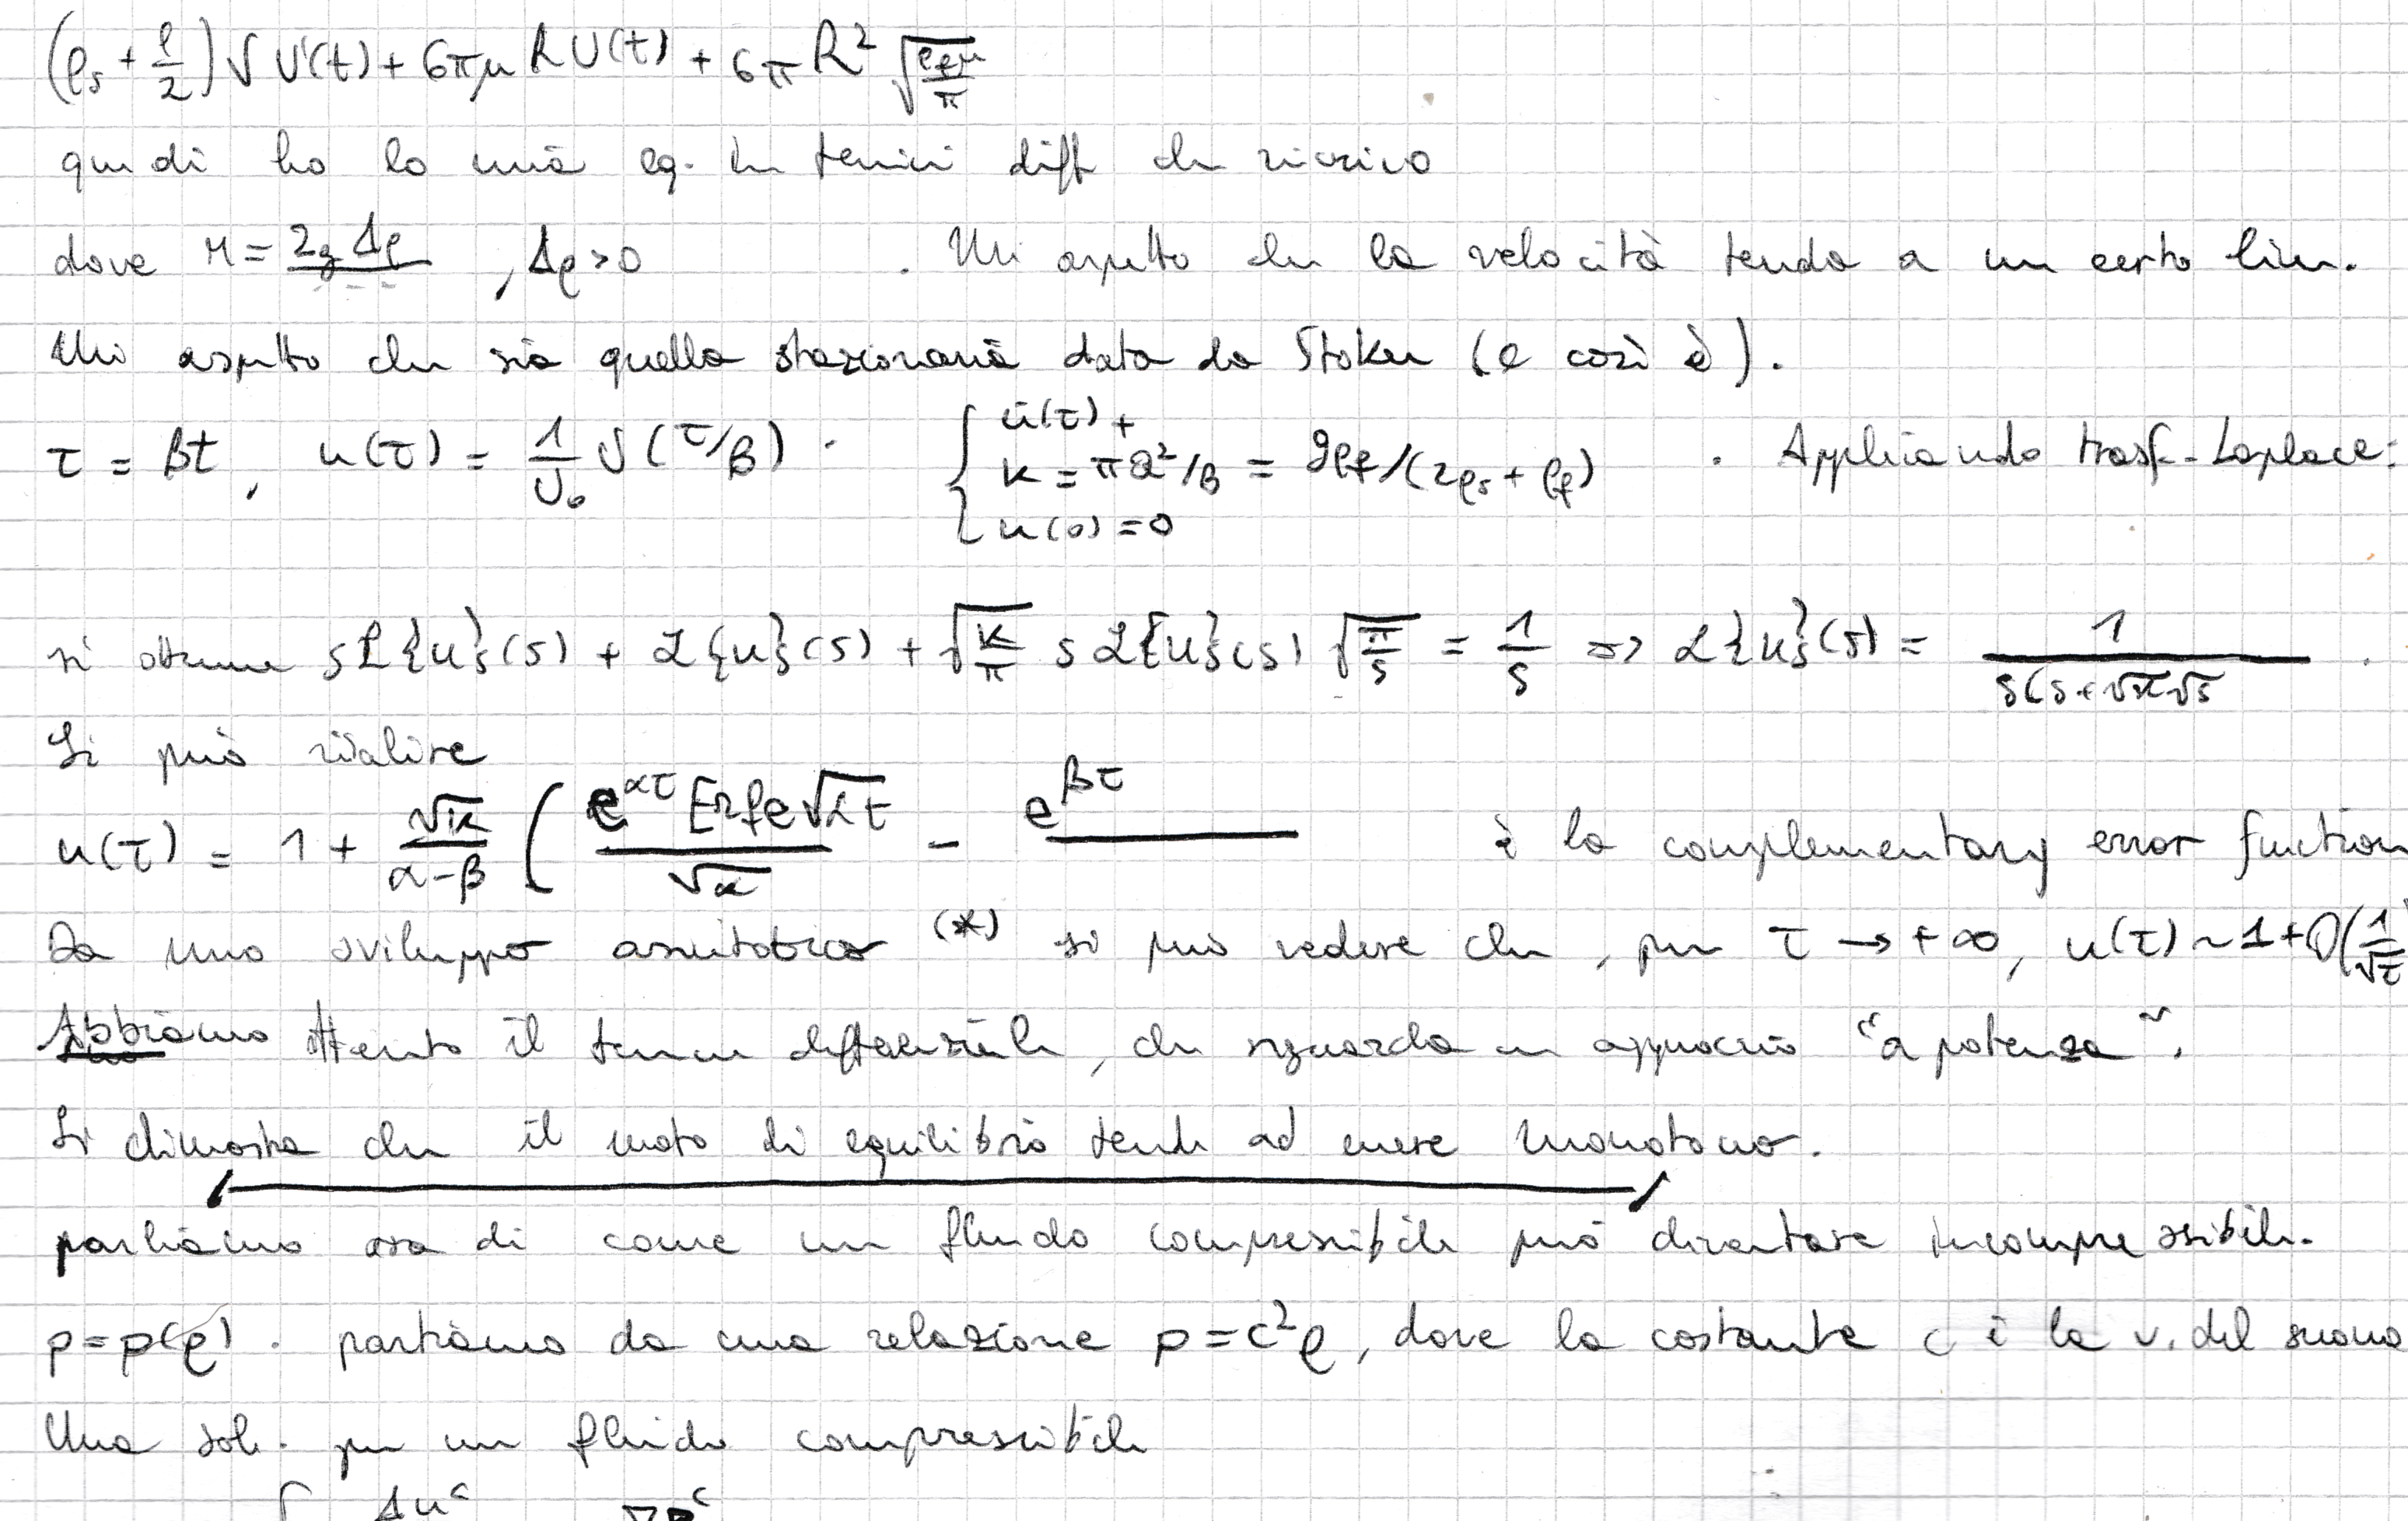 (ρs + ρ/2) V U'(t) + 6πμ R U(t) + 6π R² √(ρfμ/π)
quidi ho la mia eq. in termini diff che riscrivo
dove M = 2gΔρ , Δρ>0 . Mi aspetto che la velocità tenda a un certo lim.
Mi aspetto che sia quella stazionaria data da Stokes (e così è).
τ = βt, u(τ) = 1/U₀ U(τ/β) . { u̇(τ) + κ = πa²/β = 9ρf/(2ρs + ρf) u(0) = 0 . Applicando trasf. Laplace:
si ottiene sL{u}(s) + L{u}(s) + √(κ/π) s L{u}(s) √(π/s) = 1/s => L{u}(s) = 1/(s(s+√κ√s .
Si può risalire
u(τ) = 1 + √κ/(α-β) ( e^{ατ} Erfc√αt / √α - e^{βτ} è la complementary error function
Da uno sviluppo asintotico (*) si può vedere che, per τ → +∞, u(τ) ~ 1 + O(1/√τ
Abbiamo il termine differenziale, che riguarda un approccio "a potenza".
Si dimostra che il moto di equilibrio tende ad essere monotono.
parliamo ora di come un fluido compressibile può diventare incompressibile.
p = p(ρ) . partiamo da una relazione p = c²ρ, dove la costante c è la v. del suono
Una sol. per un fluido compressibile
Δu^c ∇p^c